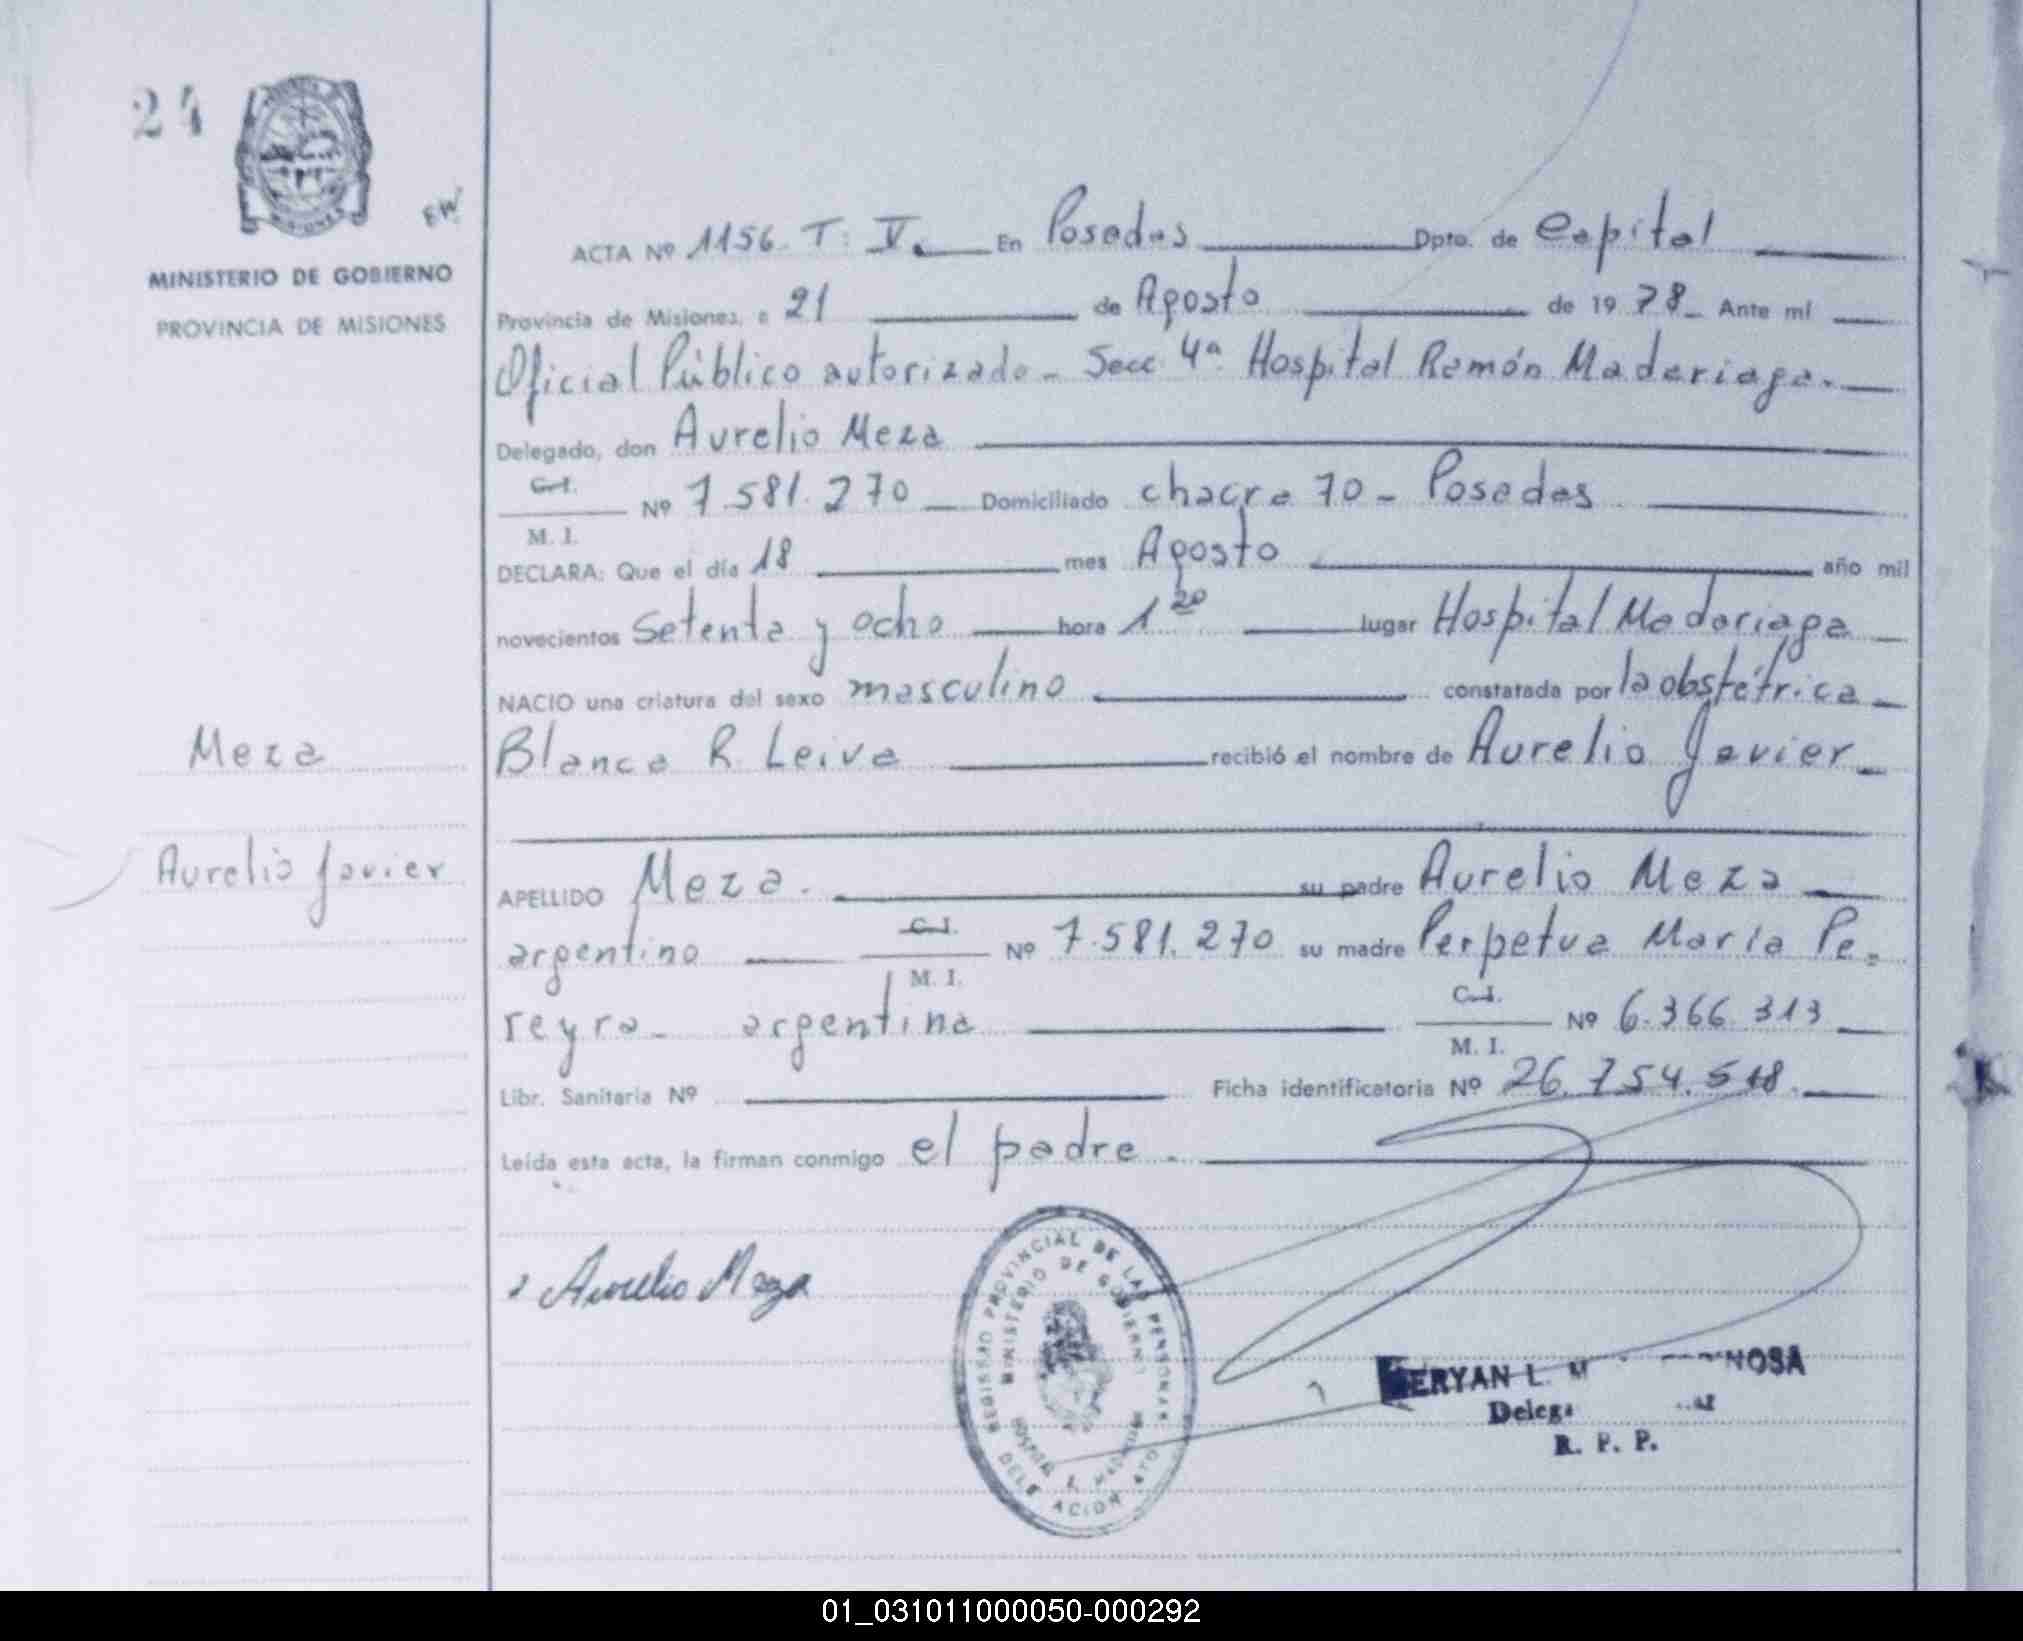 24
EW
MINISTERIO DE GOBIERNO
PROVINCIA DE MISIONES
ACTA Nº 1156. T: V. En Posadas Dpto. de Capital
Provincia de Misiones, a 21 de Agosto de 1978 Ante mí
Oficial Público autorizado - Secc 4ª Hospital Ramón Madariaga.
Delegado, don Aurelio Meza
C.I.
M. I.
Nº 7.581.270 Domiciliado chacra 70 - Posadas
DECLARA: Que el día 18 mes Agosto año mil
novecientos Setenta y ocho hora 1 20 lugar Hospital Madariaga
NACIO una criatura del sexo masculino constatada por la obstétrica
Meza
Blanca R. Leiva recibió el nombre de Aurelio Javier
Aurelio Javier
APELLIDO Meza. su padre Aurelio Meza
argentino C.I.
M. I.
Nº 7.581.270 su madre Perpetua María Pe-
reyra - argentina C.I.
M. I.
Nº 6.366.313
Libr. Sanitaria Nº Ficha identificatoria Nº 26.754.518.
Leída esta acta, la firman conmigo el padre.
Aurelio Meza
REGISTRO PROVINCIAL DE LAS PERSONAS
MINISTERIO DE GOBIERNO
HOSPITAL R. MADARIAGA
DELEGACION 4TO
ERYAN L. M NOSA
Deleg
R. P. P.
01_031011000050-000292